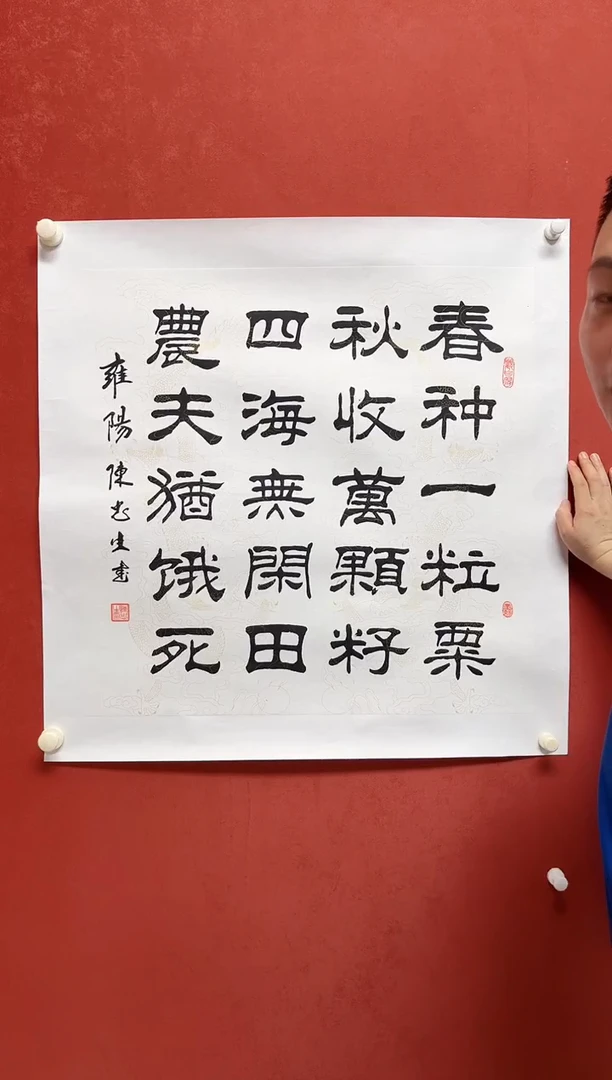 春种一粒粟
秋收萬顆籽
四海無閑田
農夫猶饿死
雍陽陳志生書